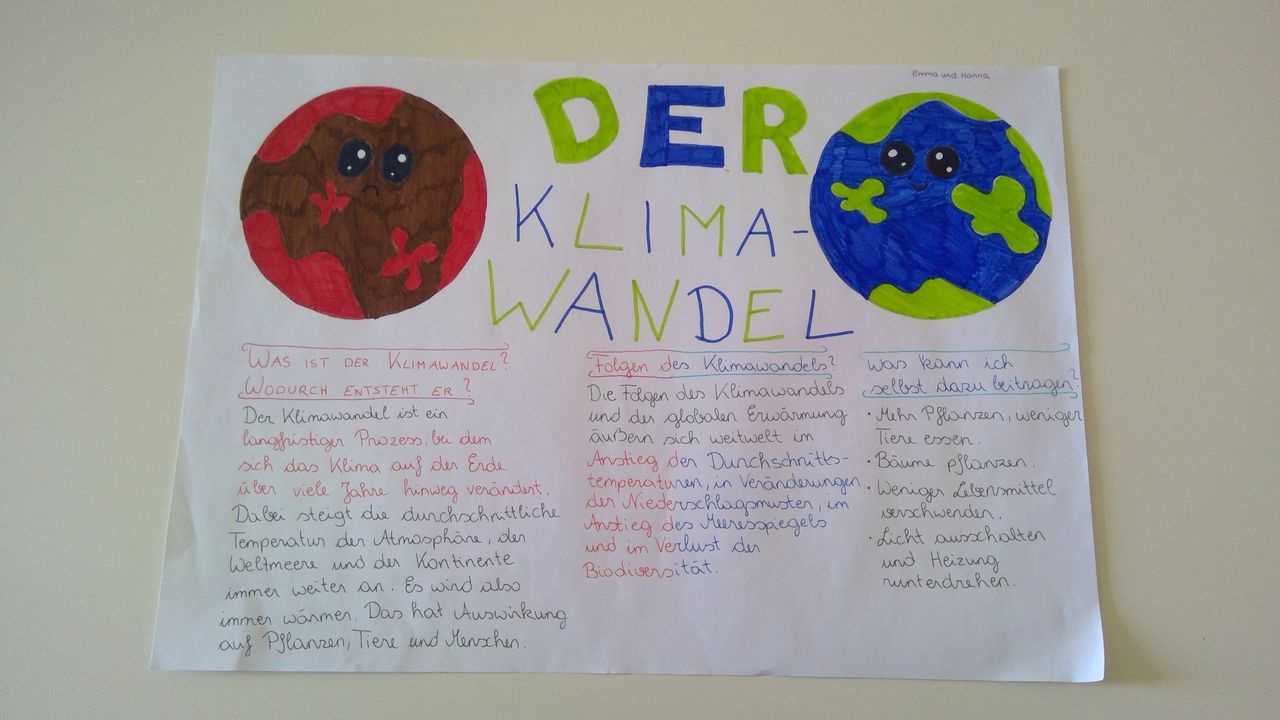 Emma und Hanna
DER
KLIMA-
WANDEL
WAS IST DER KLIMAWANDEL?
WODURCH ENTSTEHT ER?
Der Klimawandel ist ein
langfristiger Prozess, bei dem
sich das Klima auf der Erde
über viele Jahre hinweg verändert.
Dabei steigt die durchschnittliche
Temperatur der Atmosphäre, der
Weltmeere und der Kontinente
immer weiter an. Es wird also
immer wärmer. Das hat Auswirkung
auf Pflanzen, Tiere und Menschen.
Folgen des Klimawandels?
Die Folgen des Klimawandels
und der globalen Erwärmung
äußern sich weitwelt im
Anstieg der Durchschnitts-
temperaturen, in Veränderungen
der Niederschlagsmuster, im
Anstieg des Meeresspiegels
und im Verlust der
Biodiversität.
Was kann ich
selbst dazu beitragen?
· Mehr Pflanzen, weniger
Tiere essen.
· Bäume pflanzen.
· Weniger Lebensmittel
verschwenden.
· Licht ausschalten
und Heizung
runterdrehen.